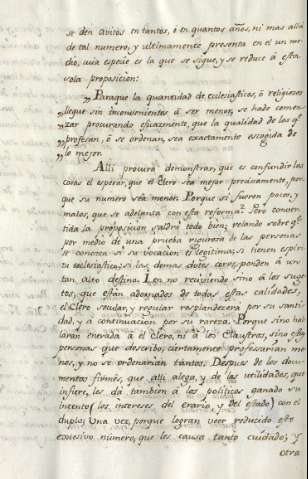 se den avitos en tantos, o en quantos años, ni mas allá
de tal numero, y ultimamente presenta en el un mu-
cho, cuia especie es la que se sigue, y se reduce á esta
sola proposicion:
„ Paraque la quantidad de eclesiasticos, ó religiosos
„ llegue sin inconvenientes á ser menor, se ha de comen-
„ zar procurando eficazmente, que la qualidad de los q.e
„ profesan, ó se ordenan, sea exactamente escogida de
„ lo mejor.
Alli procura demonstrar, que es confundir las
cosas el esperar, que el Clero sea mejor precisamente, por-
que su numero sea menor. Porque si fueren pocos, y
malos, que se adelanta con esta reforma? Pero conver-
tida la proposicion saldrá todo bien; velando sobre q.e
por medio de una prueba rigurosa de las personas
se conozca si su vocacion es legitima; si tienen espiri-
tu eclesiastico; si las demas dotes corresponden á un
tan alto destino. Con no recibiendo sino á los suge-
tos, que estén adornados de todas estas calidades,
el Clero secular, y regular resplandecerá por su santi-
dad, y á continuacion por su rareza. Porque sino ha-
llarán entrada á el Clero, ni á los Claustros, sino estas
personas que describo, ciertamente profesarian me-
nos, y no se ordenarian tantos. Despues de los docu-
mentos firmes, que alli alega, y de las utilidades, que
infiere, les dá tambien á los politicos ganado su
intento (los intereses del erario, y del estado) con el
duplo; Una vez, porque logran veer reducido este
excesivo numero, que les causa tanto cuidado; y
otra